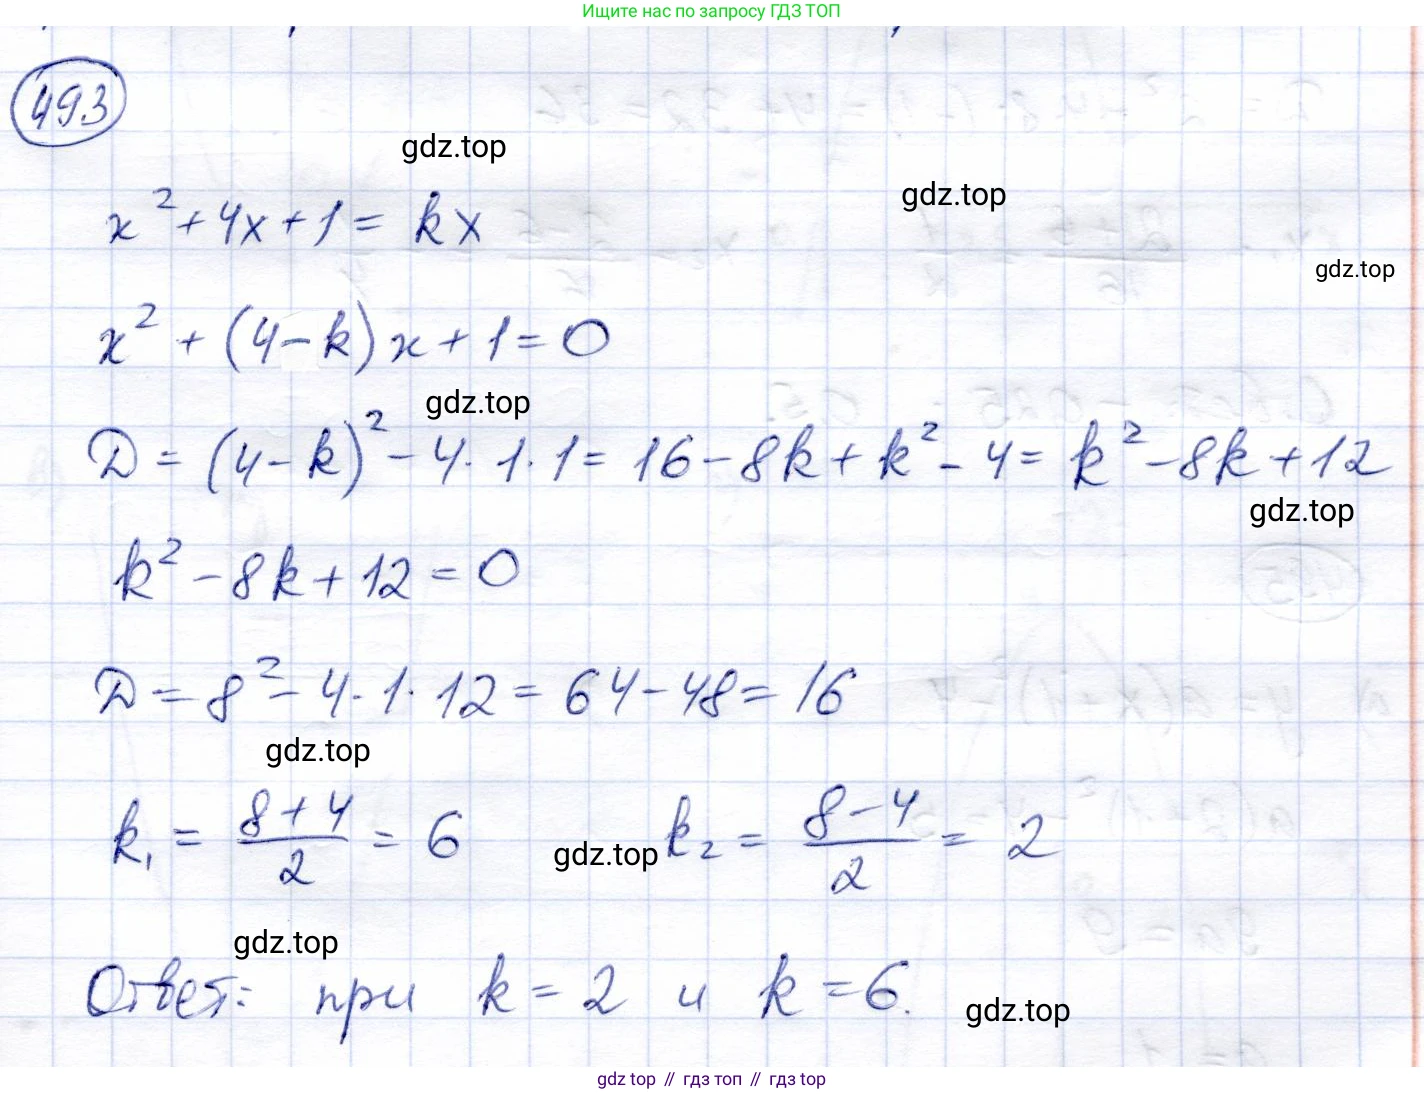 Ищите нас по запросу ГДЗ ТОП
493
gdz.top
gdz.top
x² + 4x + 1 = kx
gdz.top
x² + (4 - k)x + 1 = 0
gdz.top
D = (4 - k)² - 4 · 1 · 1 = 16 - 8k + k² - 4 = k² - 8k + 12
gdz.top
k² - 8k + 12 = 0
D = 8² - 4 · 1 · 12 = 64 - 48 = 16
gdz.top
k₁ = (8 + 4)/2 = 6 gdz.top k₂ = (8 - 4)/2 = 2
gdz.top
Ответ: при k = 2 и k = 6.
gdz.top
gdz top // гдз топ // gdz.top